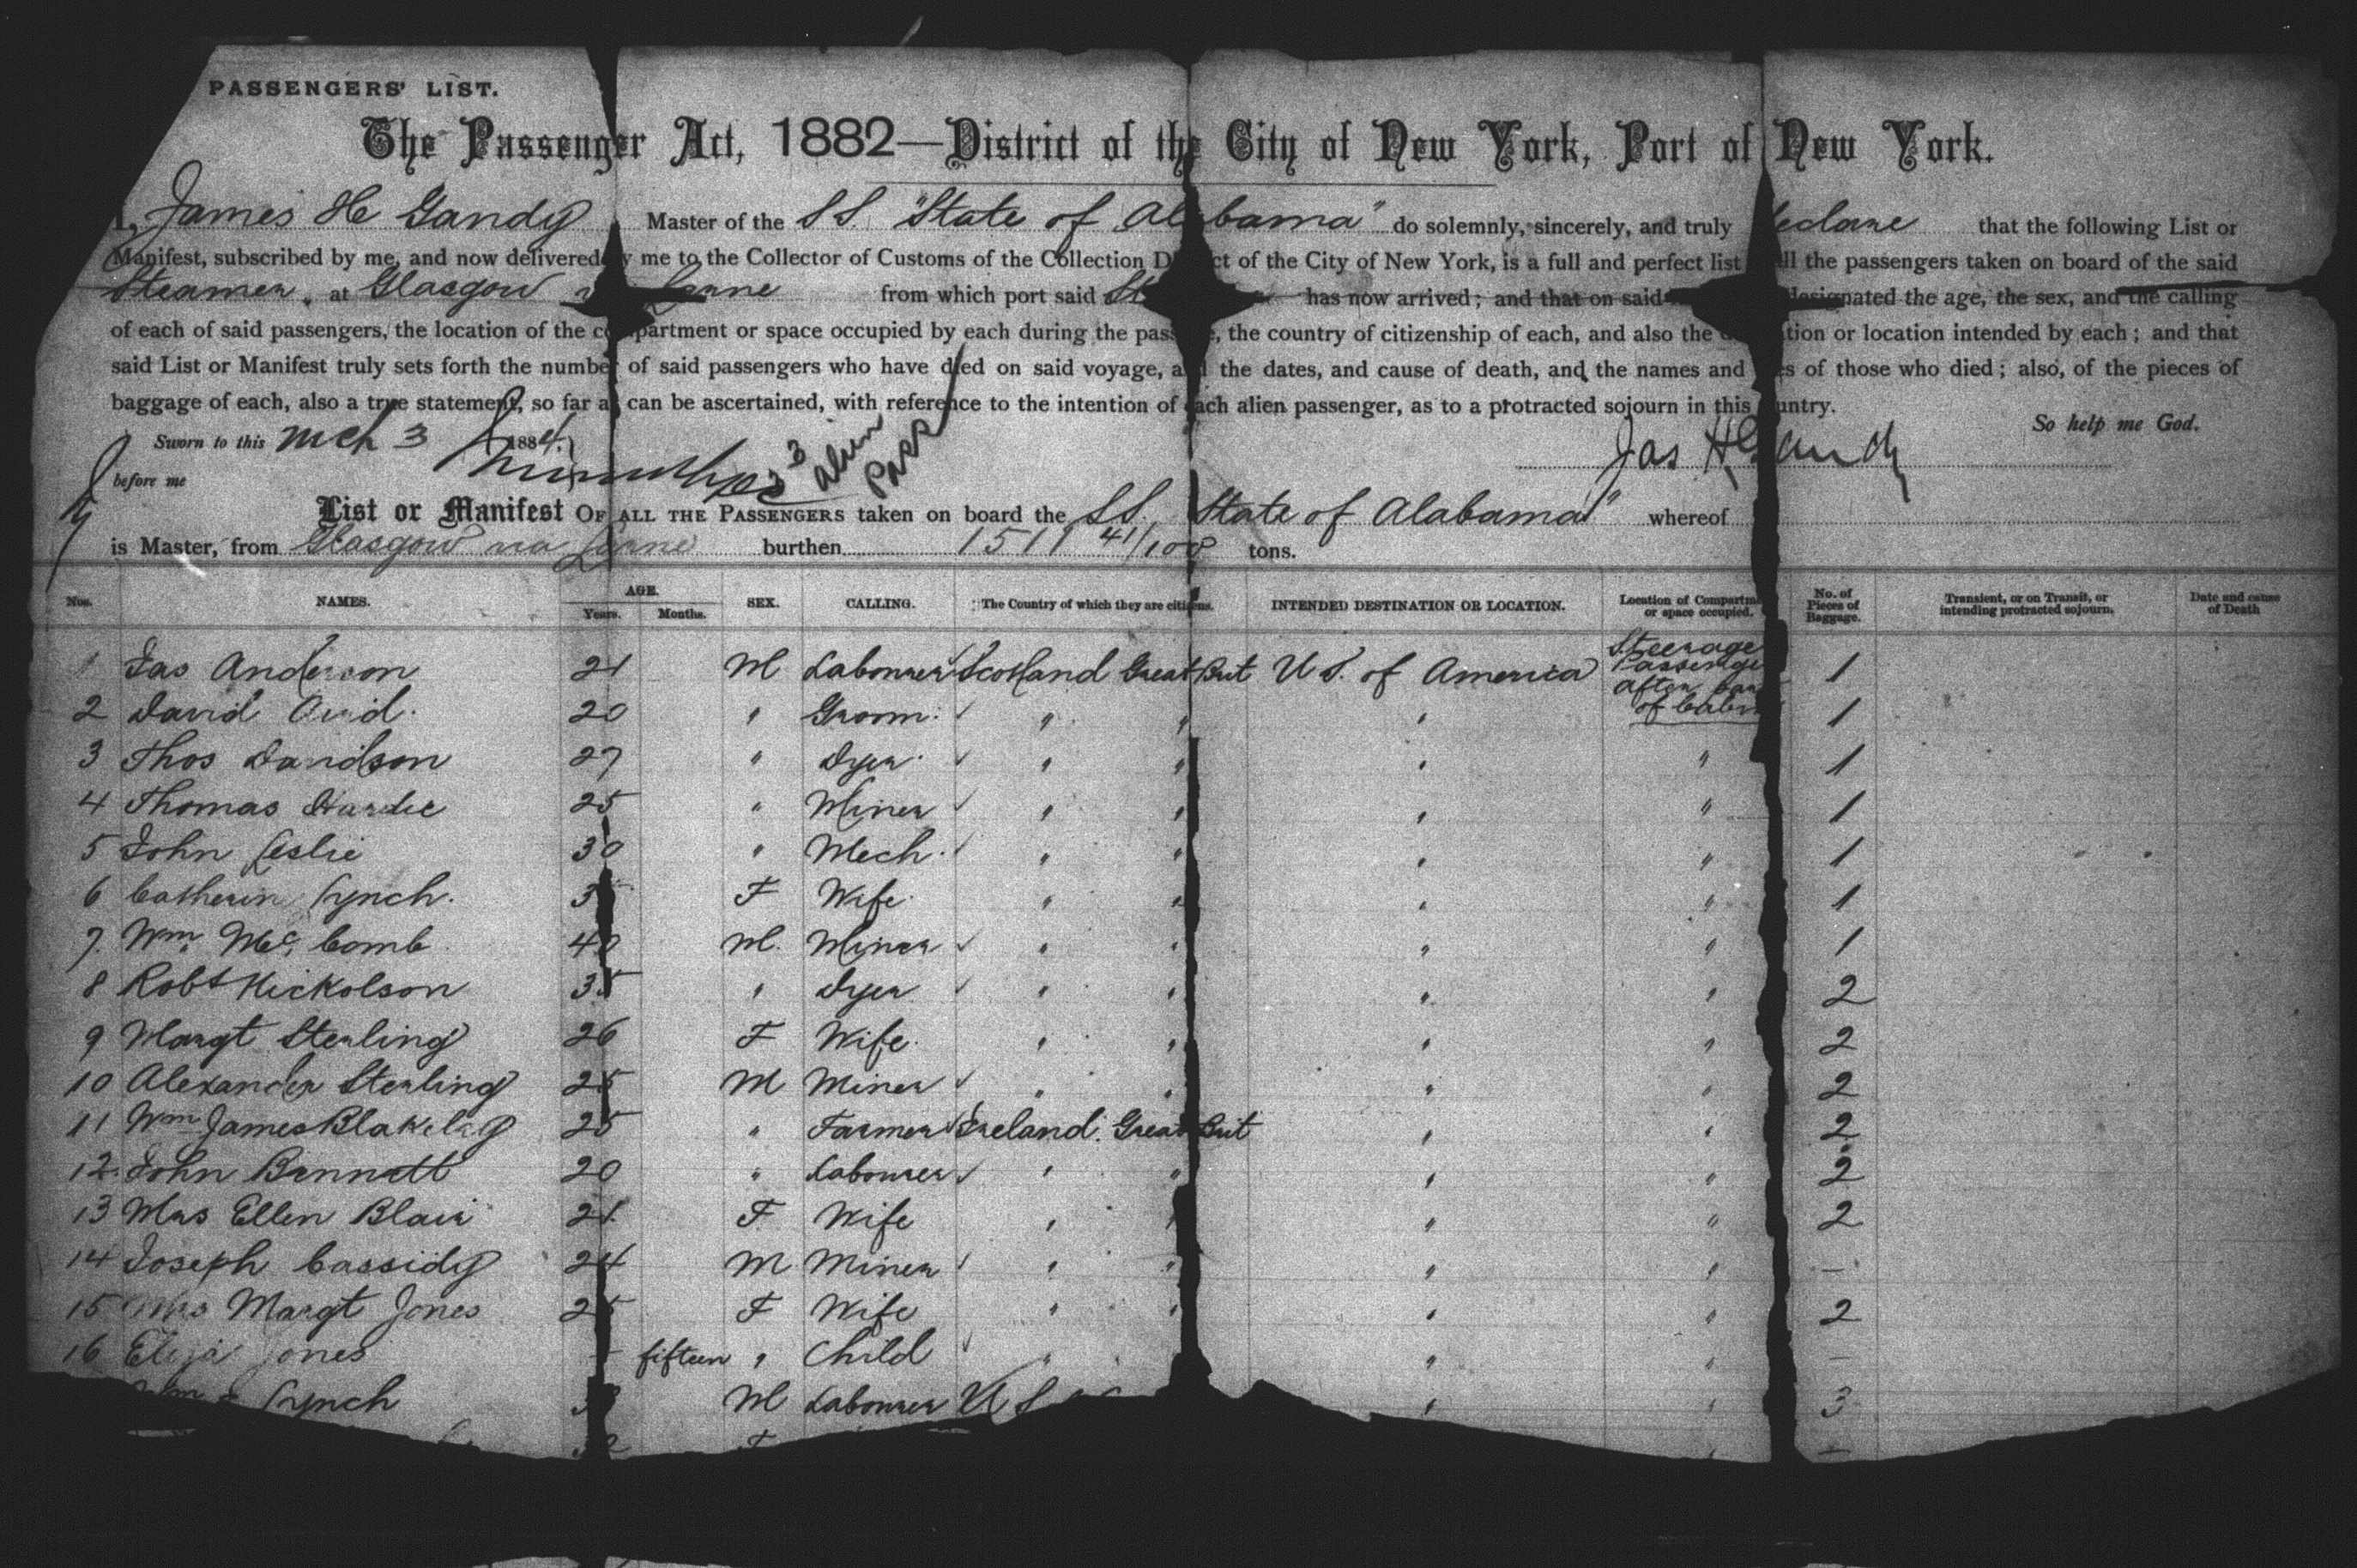 PASSENGERS' LIST.
The Passenger Act, 1882—District of the City of New York, Port of New York.
I, James H Gandy Master of the S.S. "State of Alabama" do solemnly, sincerely, and truly declare that the following List or
Manifest, subscribed by me, and now delivered by me to the Collector of Customs of the Collection District of the City of New York, is a full and perfect list all the passengers taken on board of the said
Steamer, at Glasgow Larne from which port said has now arrived; and that on said designated the age, the sex, and the calling
of each of said passengers, the location of the compartment or space occupied by each during the passage, the country of citizenship of each, and also the destination or location intended by each; and that
said List or Manifest truly sets forth the number of said passengers who have died on said voyage, and the dates, and cause of death, and the names and ages of those who died; also, of the pieces of
baggage of each, also a true statement, so far as can be ascertained, with reference to the intention of each alien passenger, as to a protracted sojourn in this country.
So help me God.
Sworn to this Mch 3 1884.
Jas H Gandy
before me
3 alien Pass
List or Manifest OF ALL THE PASSENGERS taken on board the S.S. State of Alabama" whereof
is Master, from Glasgow via Larne burthen 1511 41/100 tons.
Nos. NAMES. AGE. Years. Months. SEX. CALLING. The Country of which they are citizens. INTENDED DESTINATION OR LOCATION. Location of Compartment or space occupied. No. of Pieces of Baggage. Transient, or on Transit, or intending protracted sojourn. Date and cause of Death
1 Jas Anderson 21 M Labourer Scotland Great Brit U S. of America Steerage Passenger after part of Cabin 1
2 David 20 " Groom " " " 1
3 Thos Davidson 27 " Dyer " " " " 1
4 Thomas Hardie 25 " Miner " " " " 1
5 John Leslie 30 " Mech. " " " " 1
6 Catherin Lynch. 35 F Wife " " " " 1
7 Wm Mc Comb 40 M. Miner " " " " 1
8 Robt Nickolson 35 " Dyer " " " " 2
9 Margt Sterling 26 F Wife " " " " 2
10 Alexander Sterling 25 M Miner " " " " 2
11 Wm James Blakeley 25 " Farmer Ireland. Great Brit " " 2
12 John Bennett 20 " Labourer " " " " 2
13 Mrs Ellen Blair 21 F Wife " " " " 2
14 Joseph Cassidy 24 M Miner " " " " —
15 Mrs Margt Jones 25 F Wife " " " " 2
16 Eliza Jones — fifteen " Child " " " —
Wm Lynch M Labourer U S " " 3
32 F " —